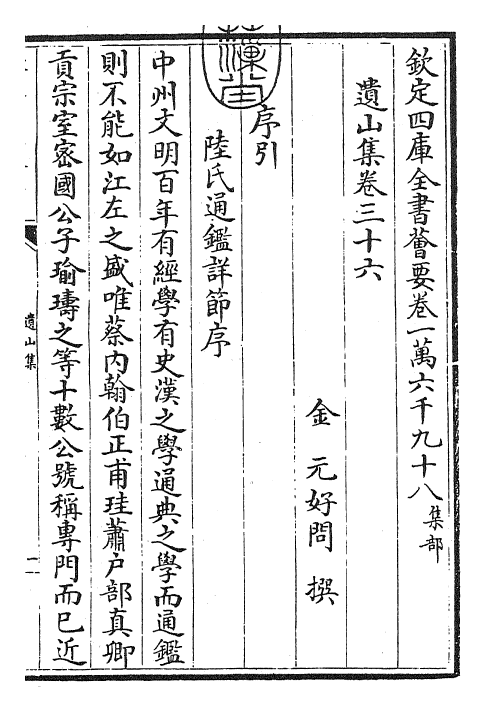 欽定四庫全書薈要卷一萬六千九十八集部
遺山集卷三十六
金元好問撰
序引
陸氏通鑑詳節序
中州文明百年有經學有史漢之學通典之學而通鑑
則不能如江左之盛唯蔡內翰伯正甫珪蕭户部真卿
貢宗室密國公子瑜璹之等十數公號稱專門而已近
遺山集
一